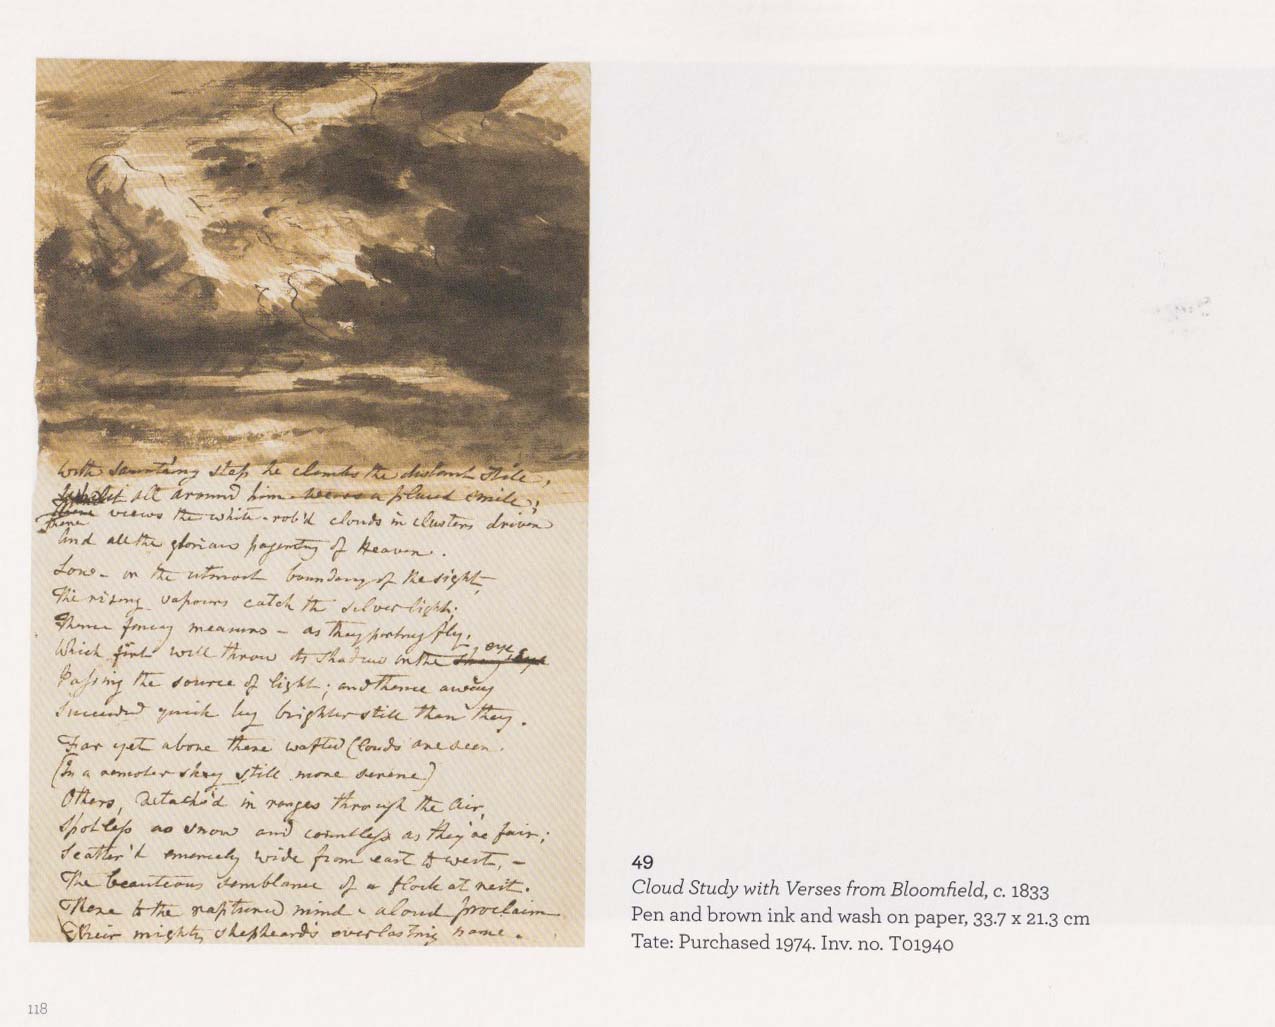 With saunt'ring step he climbs the distant stile,
Whilst all around him wears a placid smile;
There views the white-rob'd clouds in clusters driven
And all the glorious pagentry of Heaven.
Low - on the utmost boundary of the sight,
The rising vapours catch the silver light;
Thence fancy measures - as they parting fly,
Which first will throw its shadow on the eye,
Passing the source of light; and thence away
Succeeded quick by brighter still than they.
Far yet above these wafted Clouds are seen
(In a remoter sky still more serene)
Others, detach'd in ranges through the Air,
Spotless as snow and countless as they're fair;
Scatter'd immensely wide from east to west, -
The beauteous semblance of a flock at rest.
These to the raptured mind - aloud proclaim
Their mighty shepheard's everlasting name.
49
Cloud Study with Verses from Bloomfield, c. 1833
Pen and brown ink and wash on paper, 33.7 x 21.3 cm
Tate: Purchased 1974. Inv. no. T01940
118